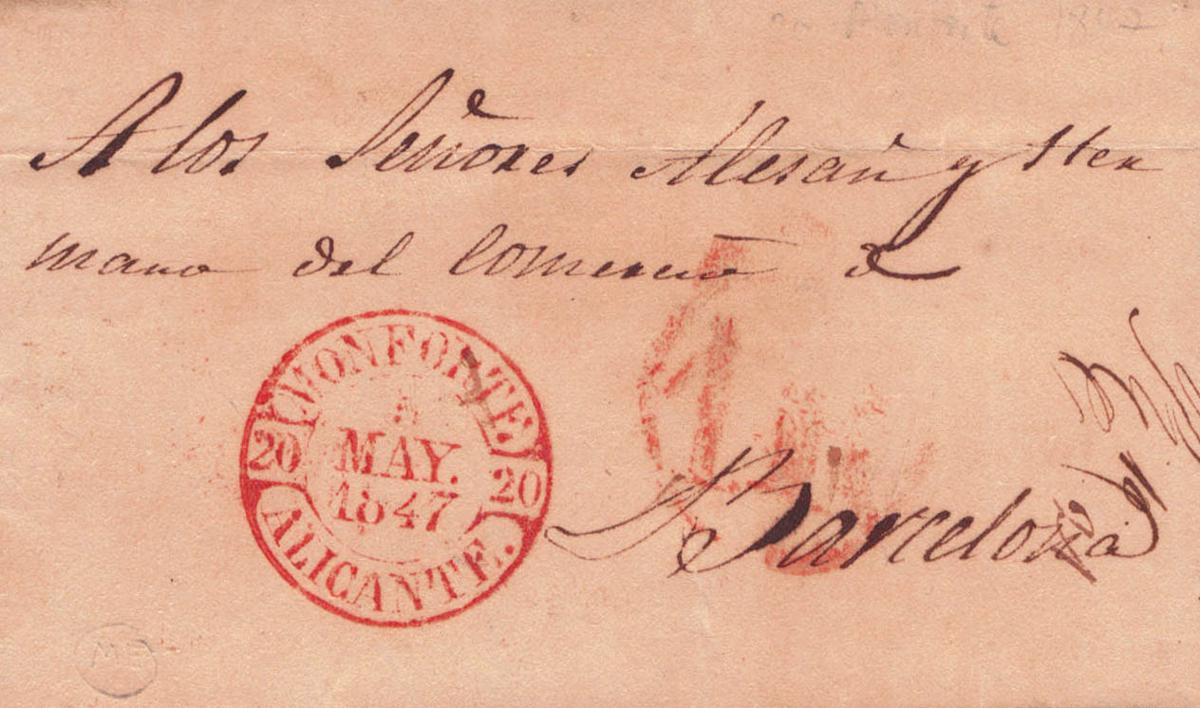 A los Señores Alesañ y Her
mano del Comercio de
MONFORTE
MAY.
20 20
1847
ALICANTE.
Barcelona